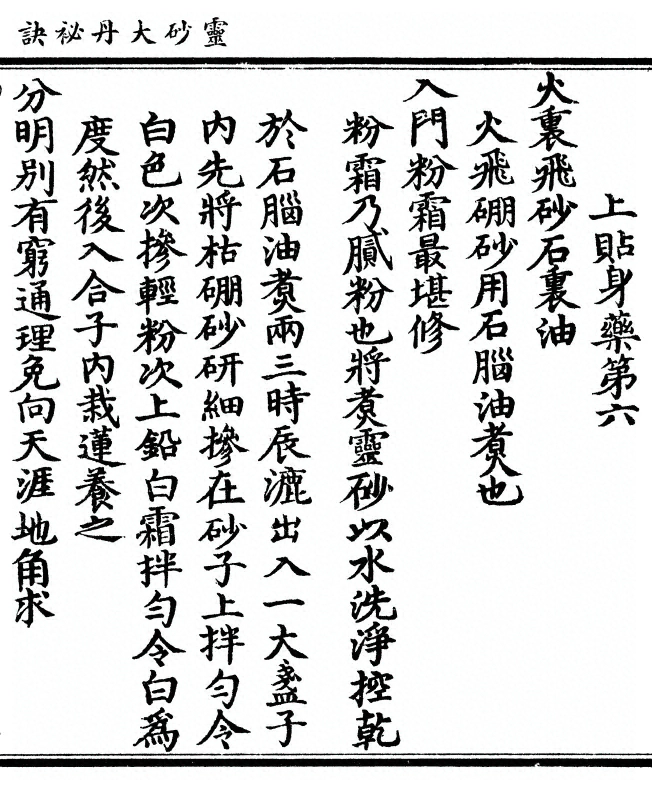 靈砂大丹祕訣
上貼身藥第六
火裏飛砂石裏油
火飛硼砂用石腦油煑也
入門粉霜最堪修
粉霜乃膩粉也將煑靈砂以水洗淨控乾
於石腦油煑兩三時辰漉出入一大盞子
内先將枯硼砂研細摻在砂子上拌勻令
白色次摻輕粉次上鉛白霜拌勻令白爲
度然後入合子内栽蓮養之
分明別有窮通理免向天涯地角求